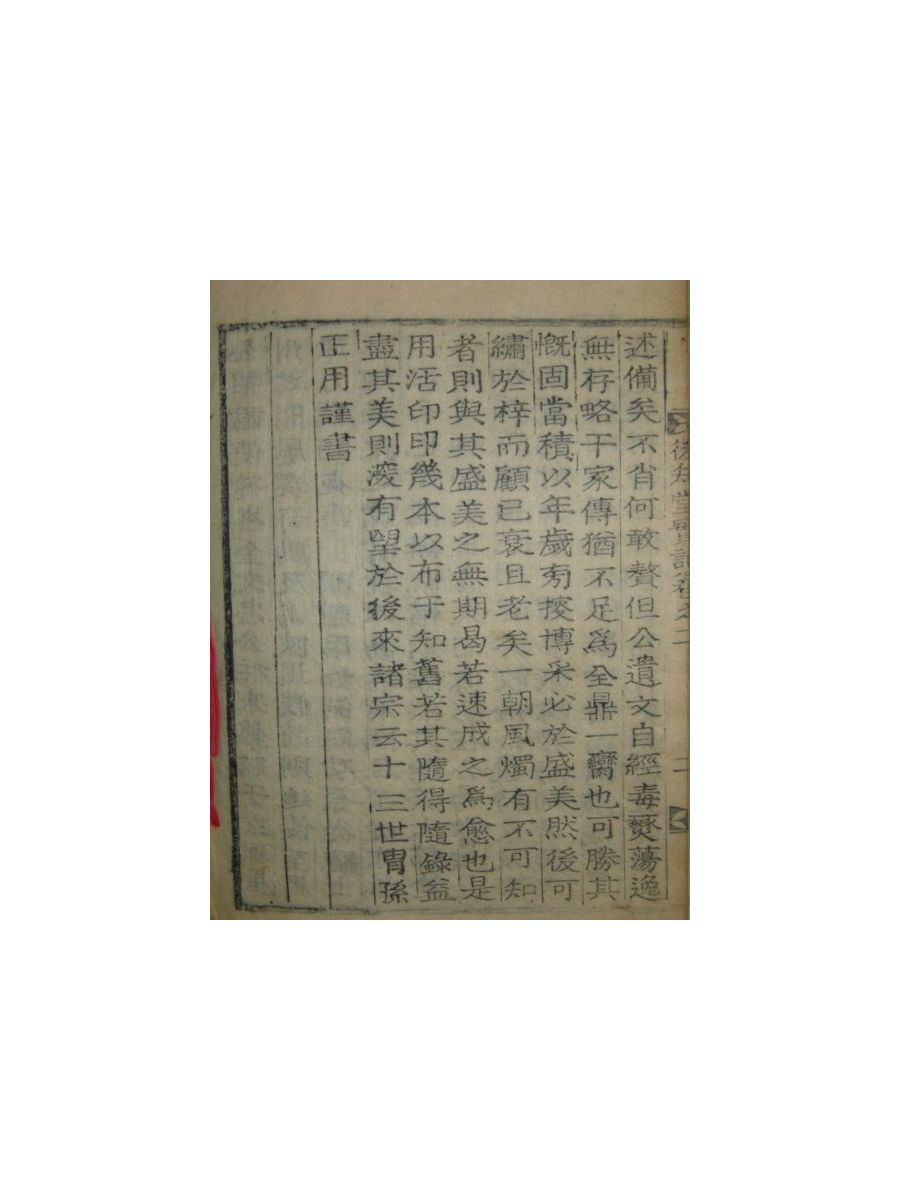 述備矣不肖何敢贅但公遺文自經毒燹蕩逸
無存略干家傳猶不足爲全鼎一臠也可勝其
慨固當積以年歲旁搜博采必於盛美然後可
繡於梓而顧已衰且老矣一朝風燭有不可知
者則與其盛美之無期曷若速成之爲愈也是
用活印印幾本以布于知舊若其隨得隨錄益
盡其美則深有望於後來諸宗云十三世胄孫
正用謹書
堂實記卷之二
二